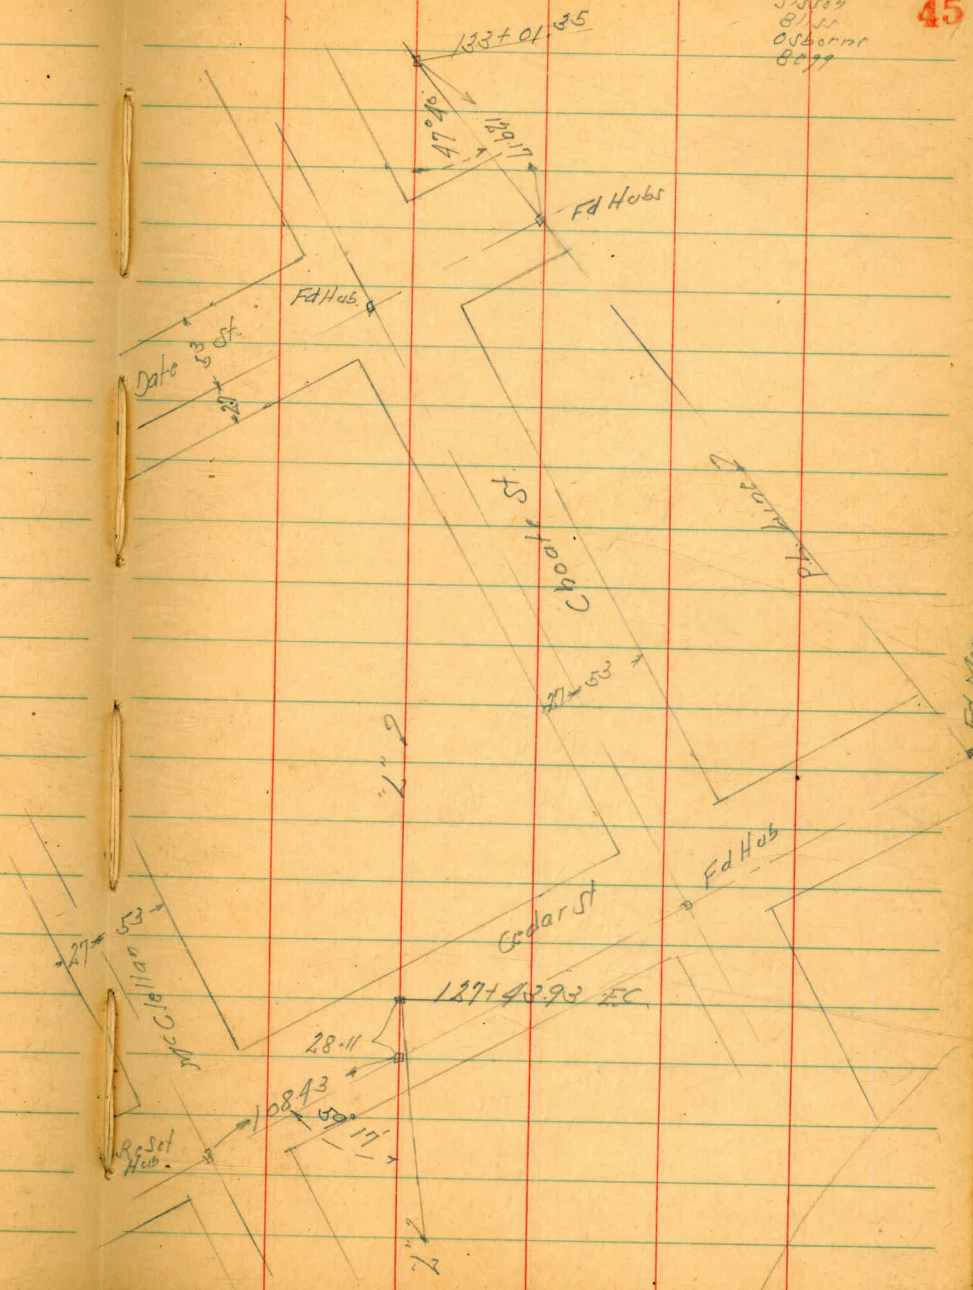 45
Sisson
Bliss
Osborne
Begg
133+01.35
47°40'
129.17
Fd Hubs
Fd Hub.
Date St.
53
27
Choate St.
P.L. Line ?
27 53
"L" ?
Fd Hub
Cedar St
27 53
McClellan
127+43.93 EC
28.11
108.43
59°
17'
Reset
Hub.
"L" ?